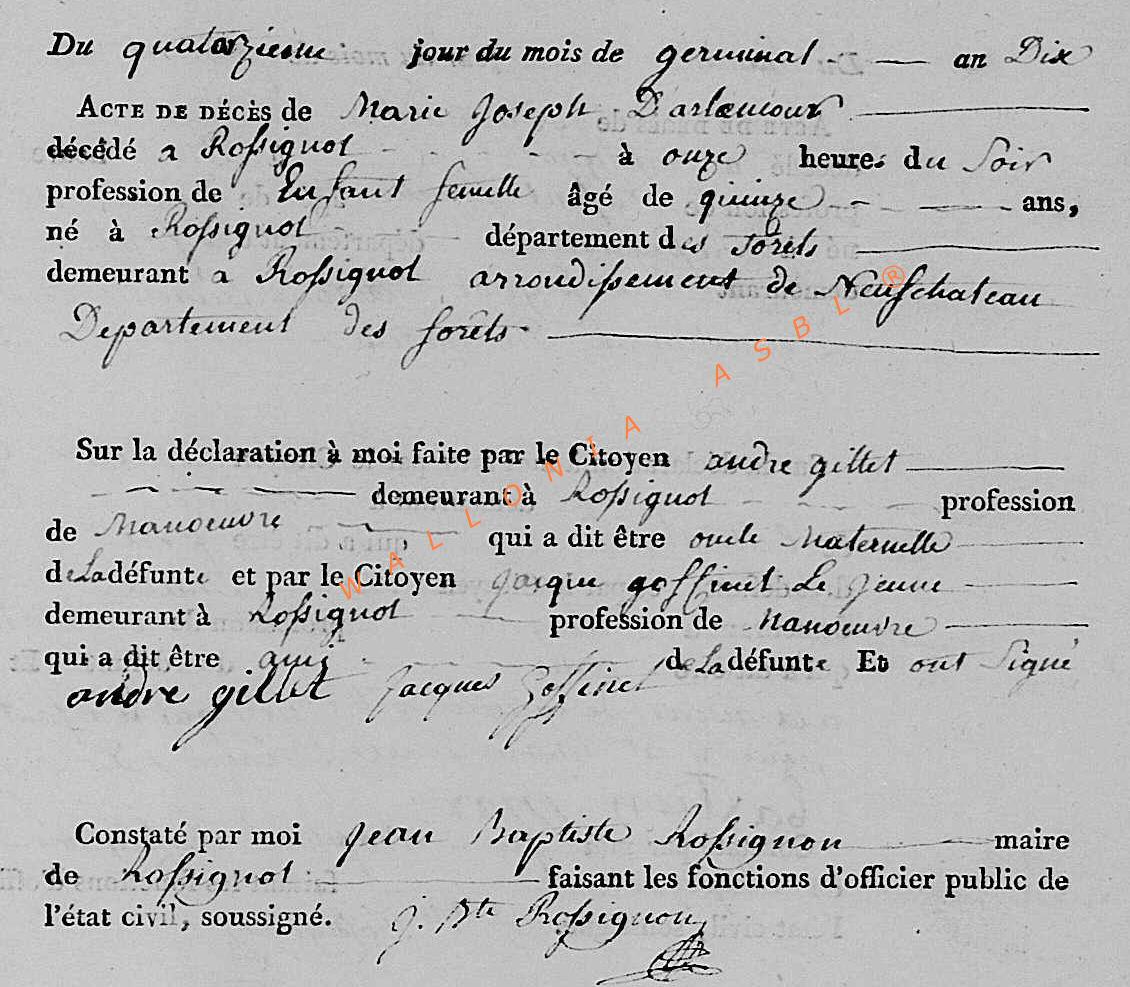 Du quatorzieme jour du mois de germinal an Dix
ACTE DE DÉCÈS de Marie Joseph Darlemour
décédé a Rossignol à onze heures du Soir
profession de Enfant femelle âgé de quinze ans,
né à Rossignol département des forêts
demeurant a Rossignol arrondissement de Neufchateau
Departement des forêts
Sur la déclaration à moi faite par le Citoyen andre gillet
demeurant à Rossignol profession
de Manoeuvre qui a dit être oncle Maternelle
de La défunte et par le Citoyen jacque goffinet Le jeune
demeurant à Rossignol profession de Manoeuvre
qui a dit être ami de La défunte Et ont Signé
andre gillet jacques goffinet
Constaté par moi jean Baptiste Rossignon maire
de Rossignol faisant les fonctions d'officier public de
l'état civil, soussigné. j. Bte Rossignon
WALLONIA ASBL ®